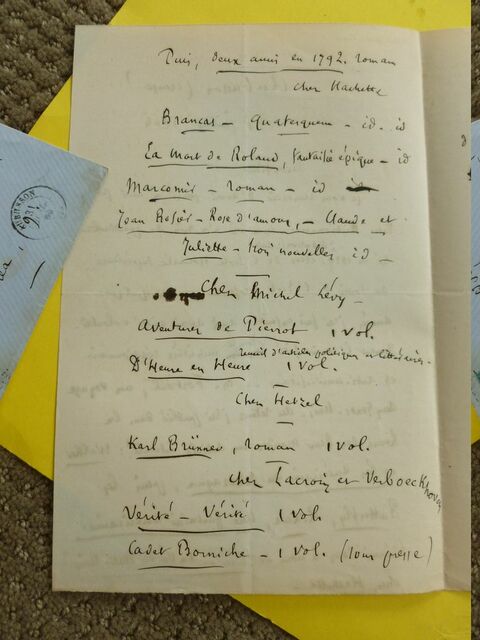 Puis, deux amis en 1792. roman
chez Hachette
Brancas – Quaterquem – id. id
La mort de Roland, fantaisie épique – id
Marcomir – roman – id
Jean Rosier – Rose d'amour, – Claude et
Juliette – trois nouvelles id –
Chez Michel Lévy –
Aventures de Pierrot 1 vol.
recueil d'articles politiques et littéraires.
D'Heure en Heure 1 vol.
Chez Hetzel
Karl Brünner, roman 1 vol.
chez Lacroix et Verboeckhoven
Vérité – Vérité 1 vol.
Cadet Borniche – 1 vol. (sous presse)